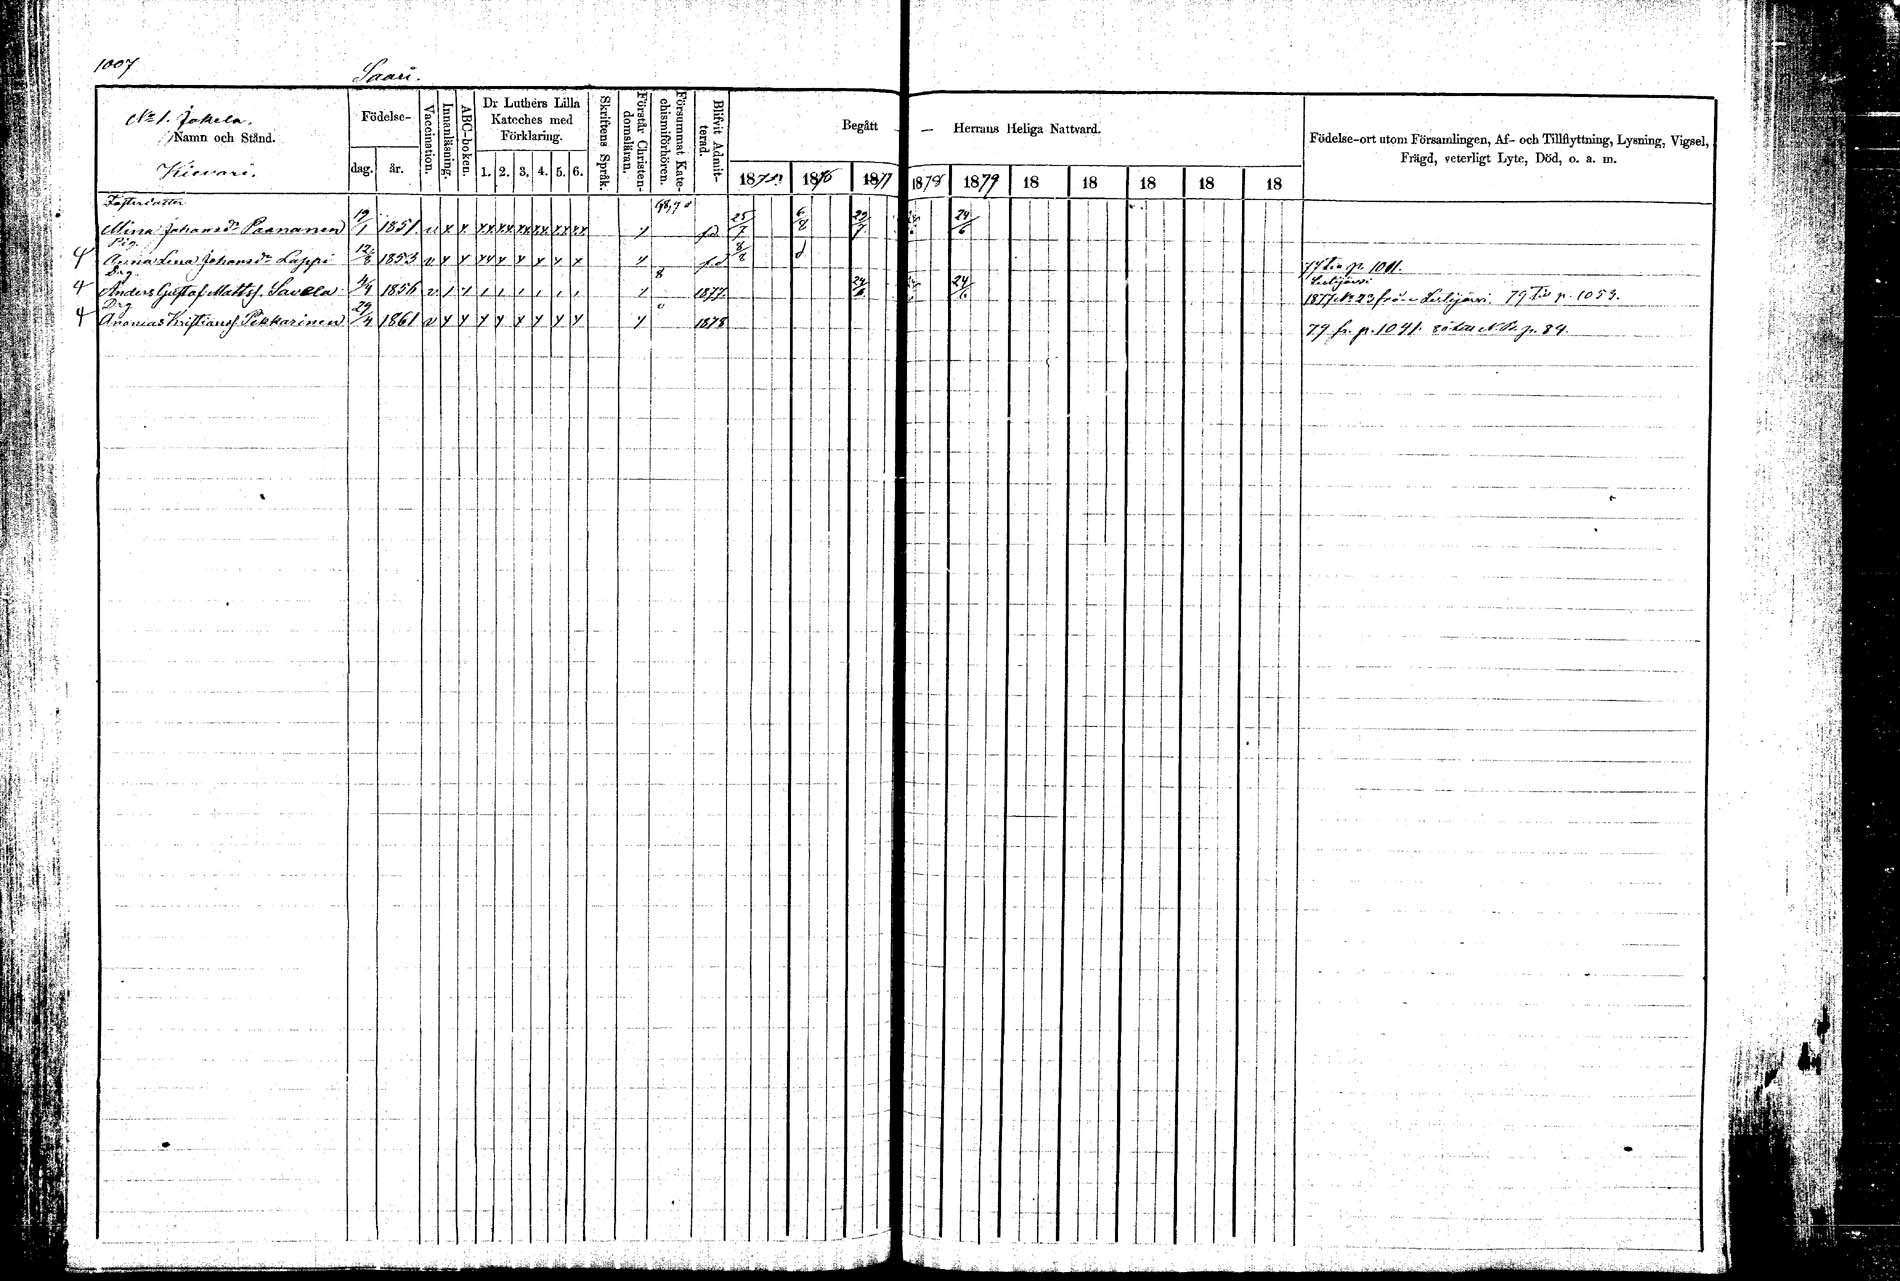 1007
Saari.
No 1. Jokela.
Namn och Stånd.
Kiuvari.
Födelse-
dag. år.
Vaccination.
Innanläsning.
ABC-boken.
Dr Luthers Lilla
Kateches med
Förklaring.
1. 2. 3. 4. 5. 6.
Skriftens Språk.
Förstår Christen-
domsläran.
Försummat Kate-
chismiförhören.
Blifvit Admit-
terad.
Begått — Herrans Heliga Nattvard.
1876 1877 1878 1879 18 18 18 18 18
Födelse-ort utom Församlingen, Af- och Tillflyttning, Lysning, Vigsel,
Frägd, veterligt Lyte, Död, o. a. m.
Fosterdotter
Mina Johansdr Paananen 19/1 1851. v x x xx xx xx xx xx xx y 25/7 6/8 29/7 24/6
Pig.
4 Anna Lena Johansdr Lappi 12/8 1853 v y y
77 till p. 1001.
Drg
4 Anders Gustaf Matts. Savela 1856 v 1877. 24/6 24/6
Lestijärvi
1877 No 23 från Lestijärvi. 79 till p. 1053.
Drg
4 Ananias Kristians. Pekkarinen 29/4 1861 v y y y y y y y y y 1878
79 fr. p. 1041. p. 84.